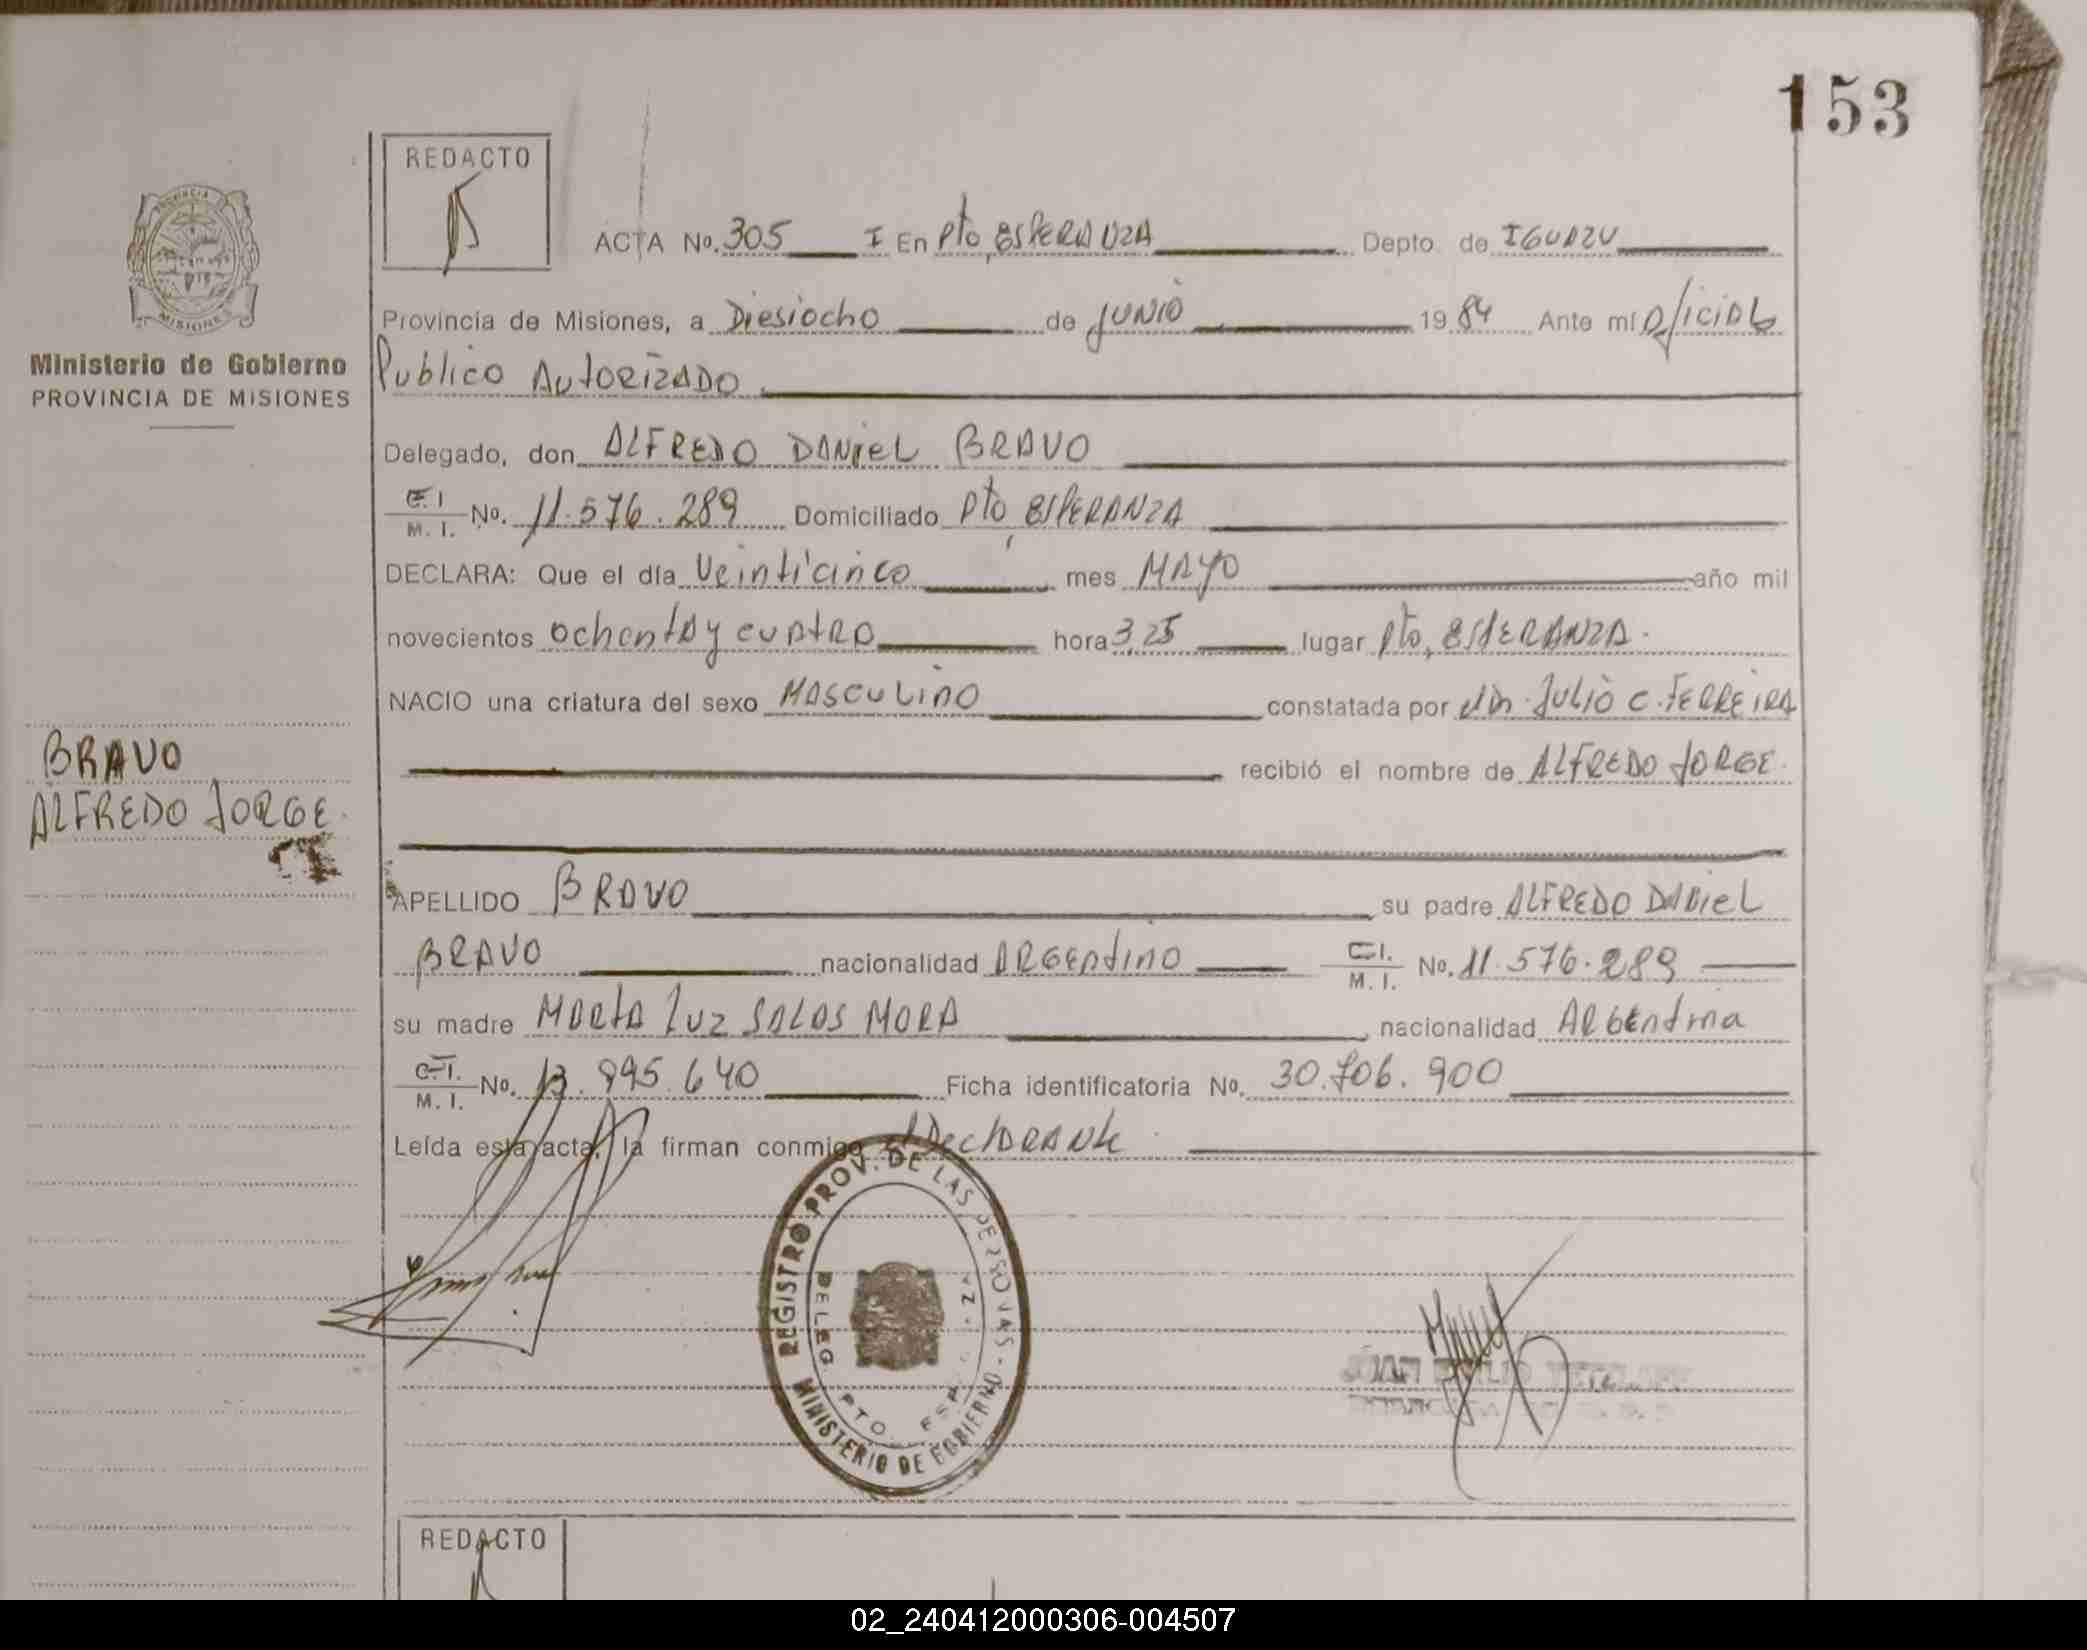 153
REDACTO
ACTA No. 305 I En Pto, ESPERANZA Depto. de IGUAZU
Provincia de Misiones, a Diesiocho de JUNIO 19 84 Ante mí Oficial
Publico Autorizado
Ministerio de Gobierno
PROVINCIA DE MISIONES
Delegado, don ALFREDO DANIEL BRAVO
C.I. M.I. No. 11.576.289 Domiciliado Pto, ESPERANZA
DECLARA: Que el día Veinticinco mes MAYO año mil
novecientos ochenta y cuatro hora 3,25 lugar Pto, ESPERANZA.
NACIO una criatura del sexo MASCULINO constatada por Julio C. FERREIRA
recibió el nombre de ALFREDO JORGE.
BRAVO
ALFREDO JORGE.
APELLIDO BRAVO su padre ALFREDO DANIEL
BRAVO nacionalidad ARGENTINO C.I. M.I. No. 11.576.289
su madre MARTA LUZ SALAS MORA nacionalidad ARGENTINA
C.I. M.I. No. 13.995.640 Ficha identificatoria No. 30.706.900
Leída esta acta, la firman conmigo el Declarante
REGISTRO PROV. DE LAS PERSONAS - MINISTERIO DE GOBIERNO
DELEG. PTO. ESP
JUAN
REDACTO
02_240412000306-004507